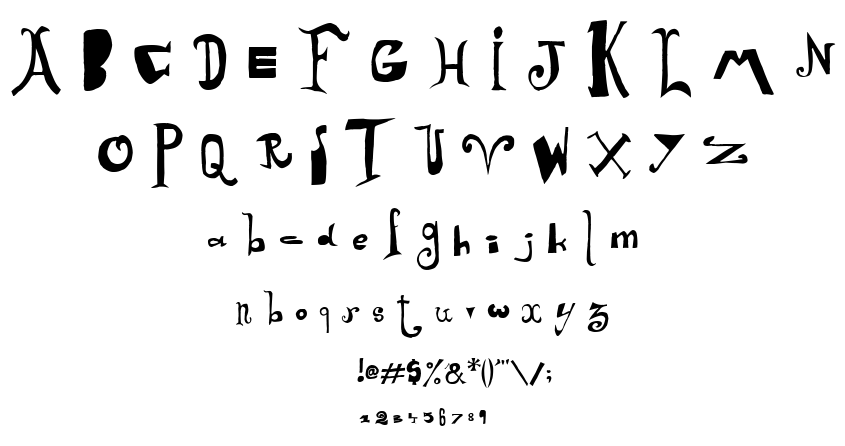 A B C D E F G H I J K L M N
O P Q R S T U V W X Y Z
a b c d e f g h i j k l m
n b o q r s t u v w x y z
!@#$%&*()'"\/;
1 2 3 4 5 6 7 8 9